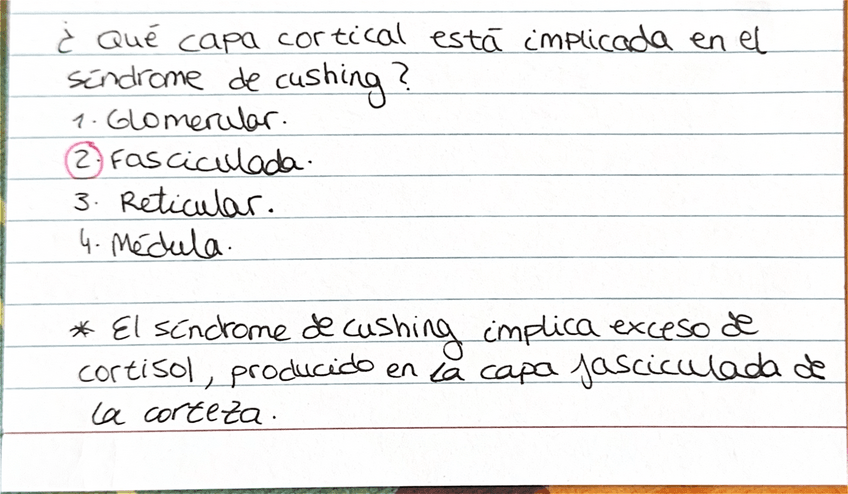 ¿ Qué capa cortical está implicada en el
síndrome de cushing?
1. Glomerular.
2. Fasciculada.
3. Reticular.
4. Médula.
* El síndrome de cushing implica exceso de
cortisol, producido en la capa fasciculada de
la corteza.